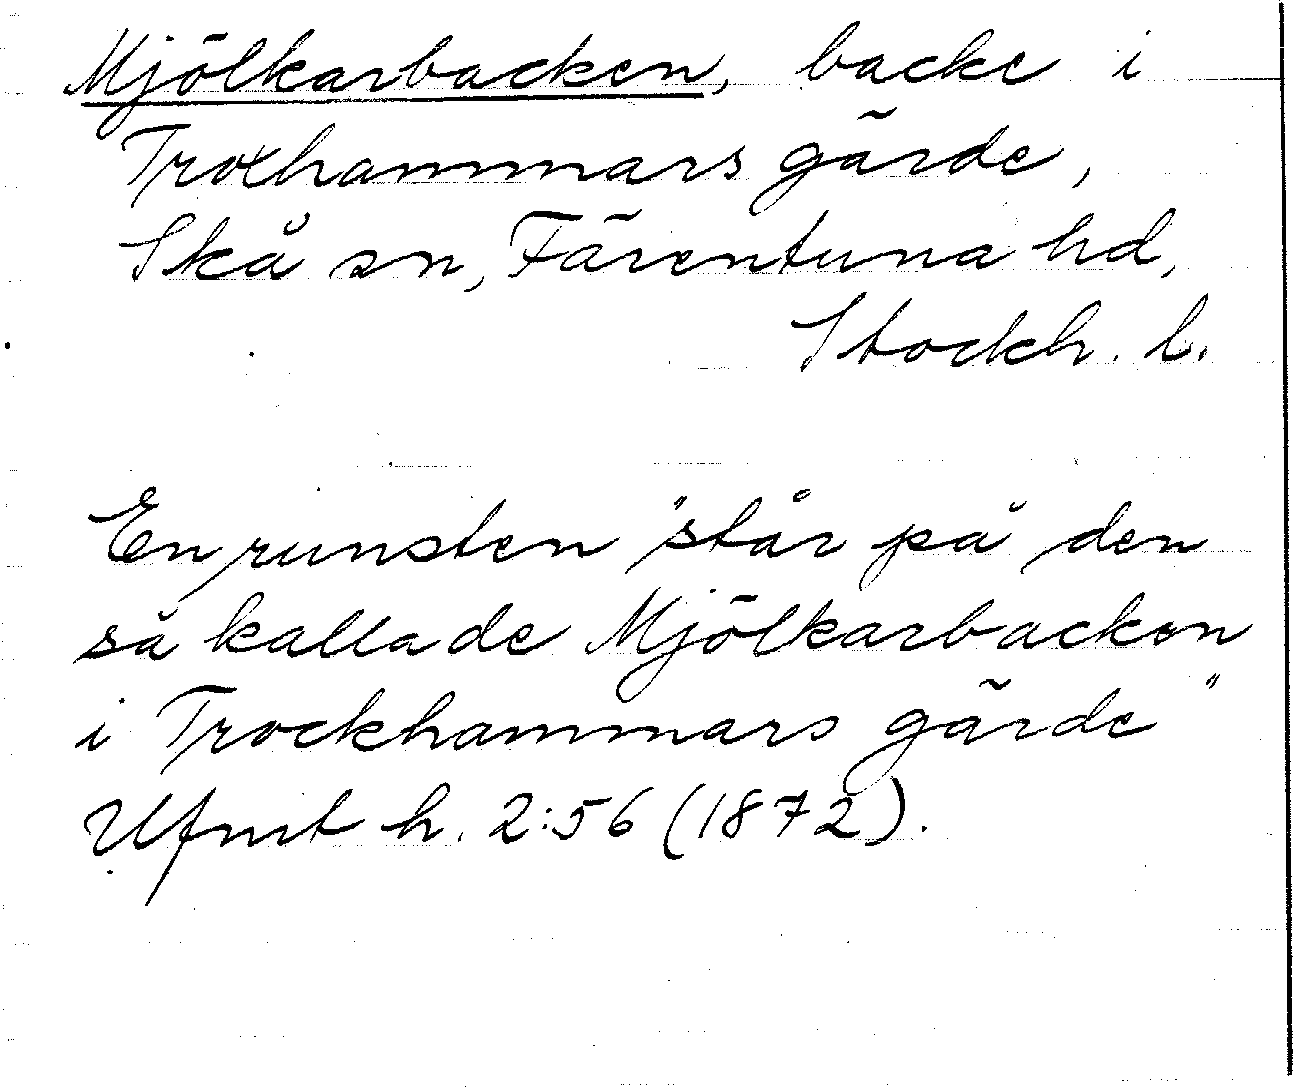 Mjölkarbacken, backe i
Troxhammars gärde,
Skå sn, Färentuna hd,
Stockh. l.
En runsten "står på den
så kallade Mjölkarbacken
i Trockhammars gärde"
Ufmt h. 2:56 (1872).